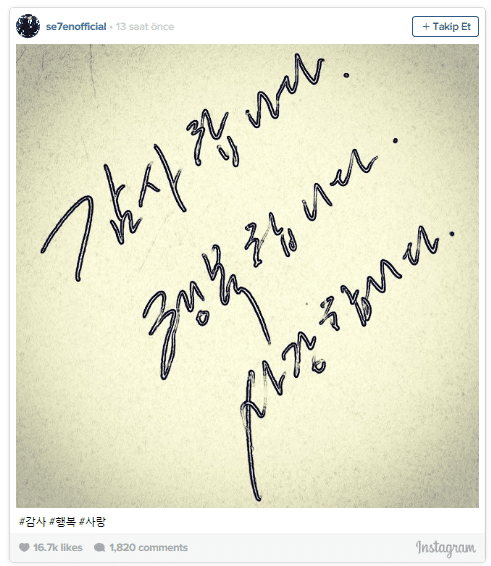 se7enofficial • 13 saat önce
+ Takip Et
감사합니다.
행복합니다.
사랑합니다.
#감사 #행복 #사랑
16.7k likes 1,820 comments
Instagram